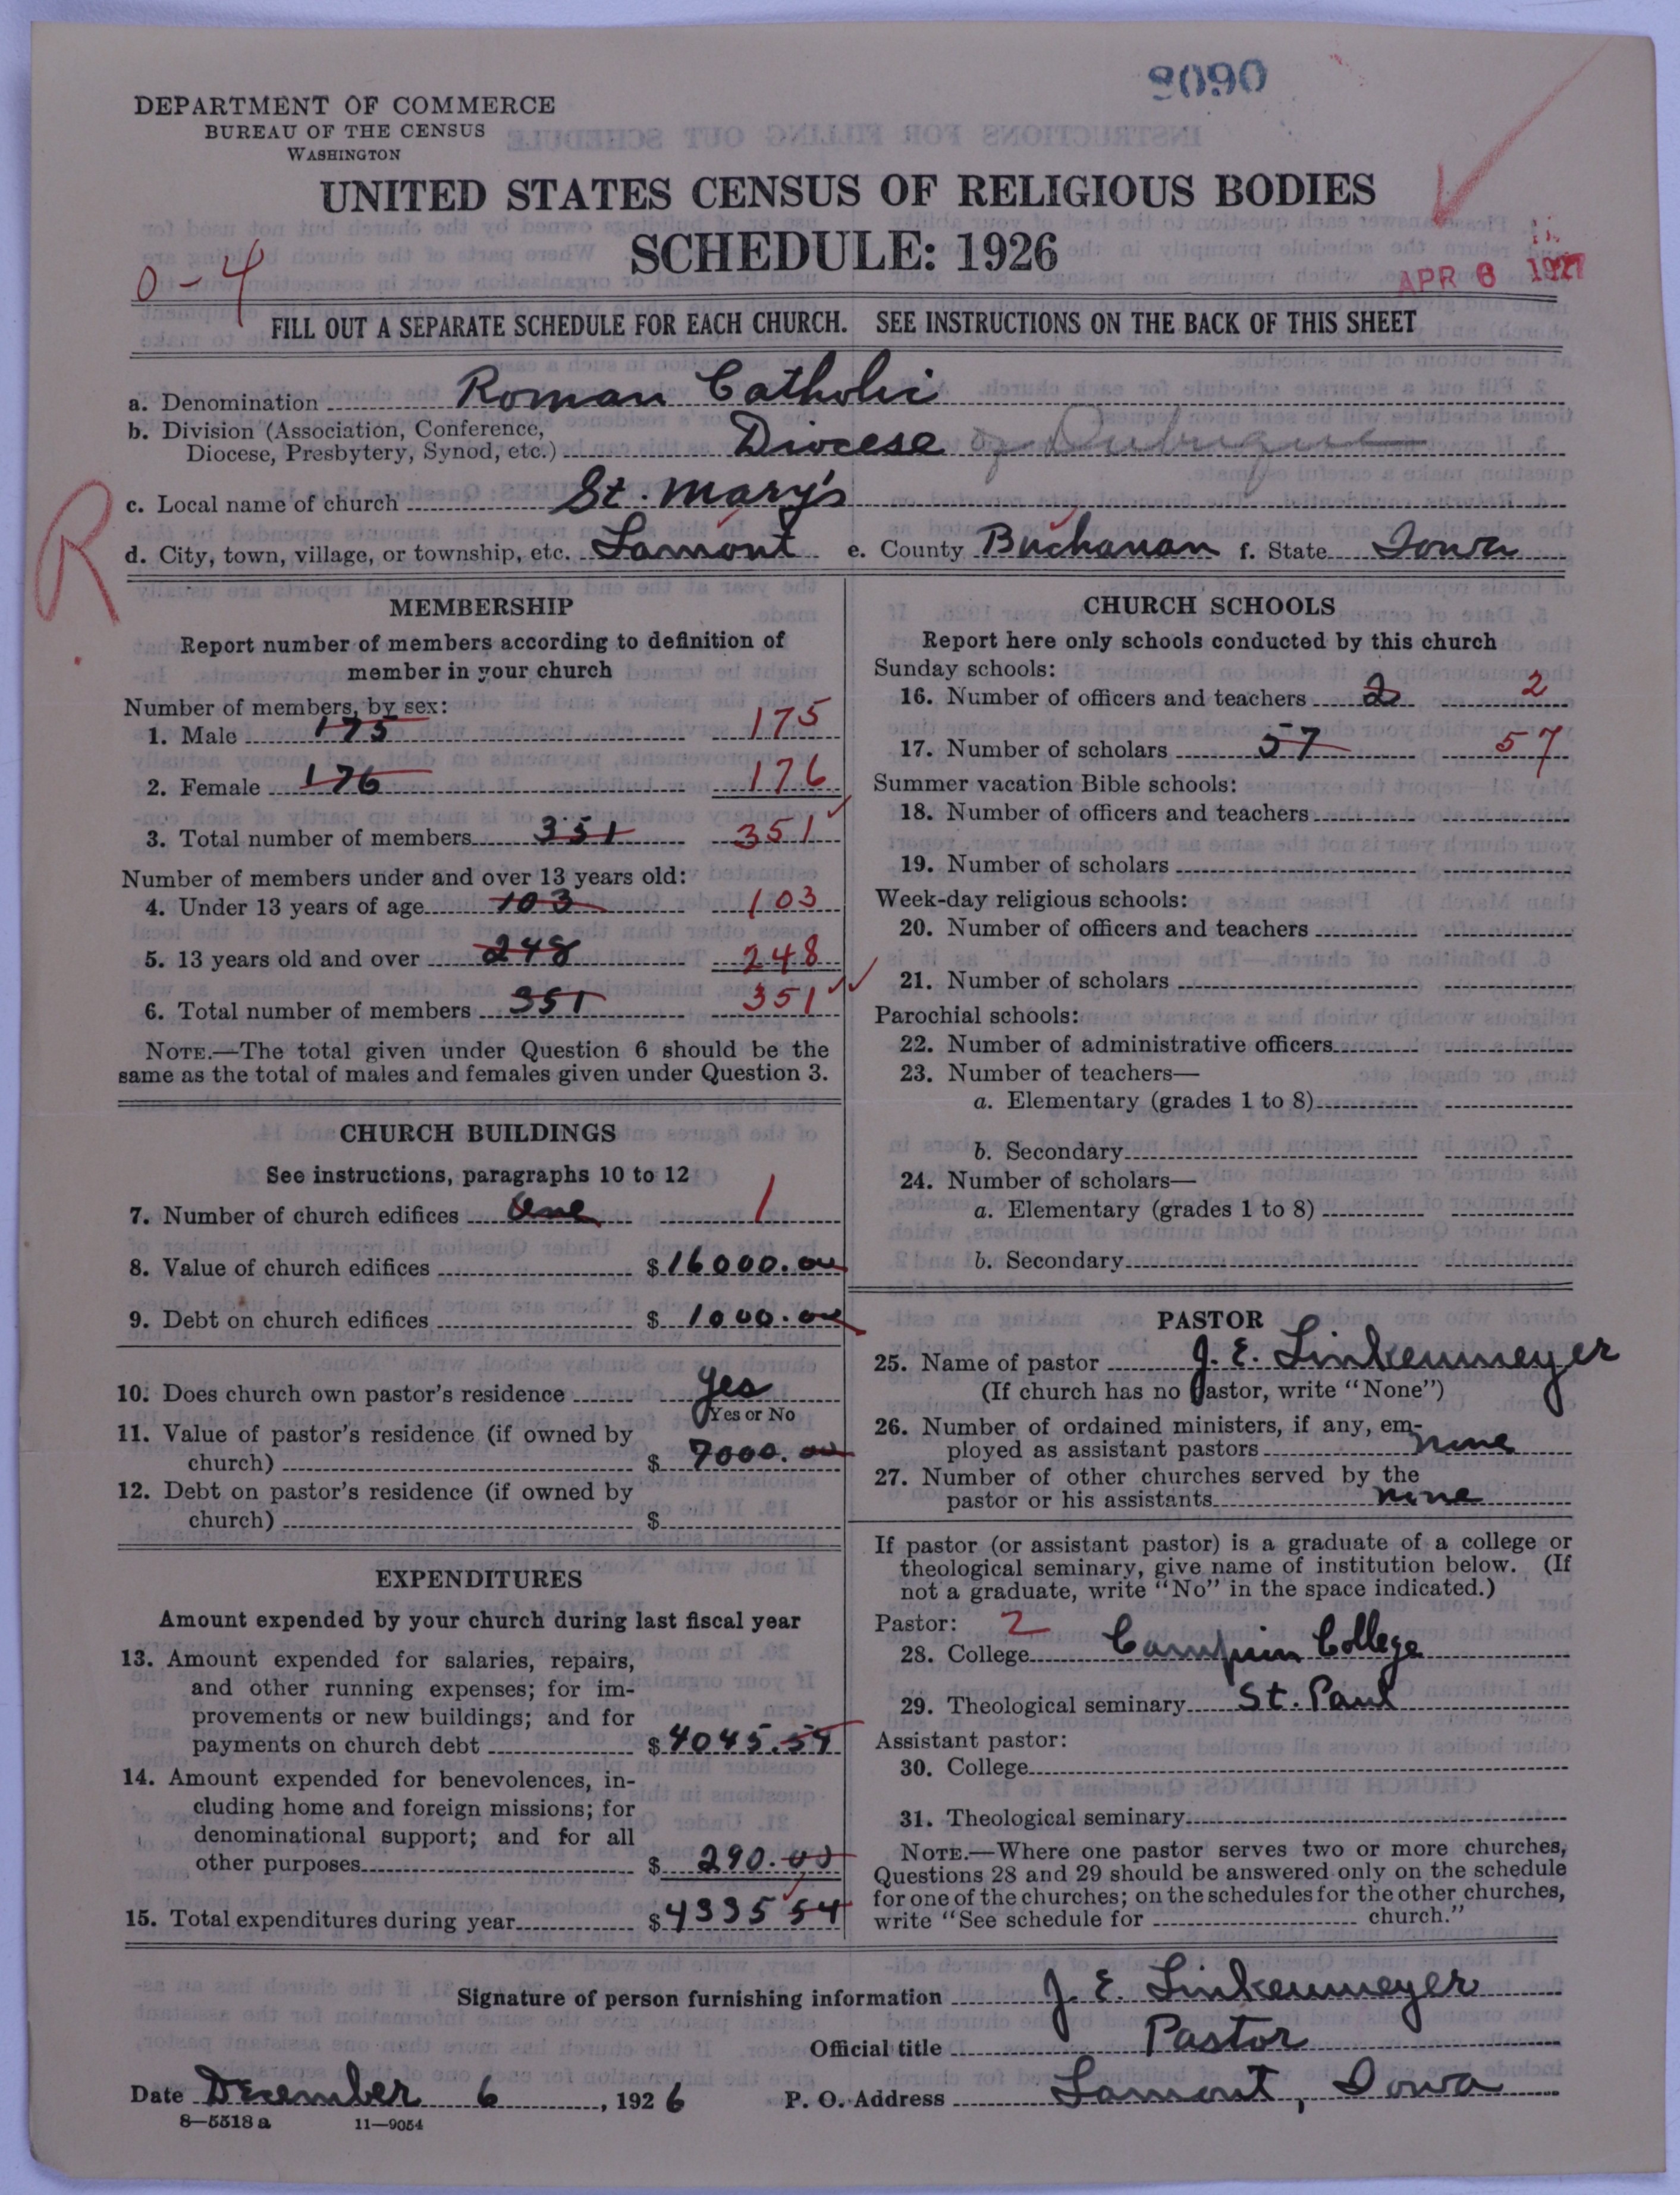 8090
DEPARTMENT OF COMMERCE
BUREAU OF THE CENSUS
WASHINGTON
UNITED STATES CENSUS OF RELIGIOUS BODIES
SCHEDULE: 1926
0-4
APR 6 1927
FILL OUT A SEPARATE SCHEDULE FOR EACH CHURCH. SEE INSTRUCTIONS ON THE BACK OF THIS SHEET
a. Denomination Roman Catholic
b. Division (Association, Conference,
Diocese, Presbytery, Synod, etc.) Diocese of Dubuque
R
c. Local name of church St. Mary's
d. City, town, village, or township, etc. Lamont e. County Buchanan f. State Iowa
MEMBERSHIP
Report number of members according to definition of
member in your church
Number of members, by sex:
1. Male 175 175
2. Female 176 176
3. Total number of members 351 351
Number of members under and over 13 years old:
4. Under 13 years of age 103 103
5. 13 years old and over 248 248
6. Total number of members 351 351
NOTE.—The total given under Question 6 should be the
same as the total of males and females given under Question 3.
CHURCH BUILDINGS
See instructions, paragraphs 10 to 12
7. Number of church edifices One 1
8. Value of church edifices $16000.00
9. Debt on church edifices $ 1000.00
10. Does church own pastor's residence Yes
Yes or No
11. Value of pastor's residence (if owned by
church) $ 7000.00
12. Debt on pastor's residence (if owned by
church) $
EXPENDITURES
Amount expended by your church during last fiscal year
13. Amount expended for salaries, repairs,
and other running expenses; for im-
provements or new buildings; and for
payments on church debt $4045.54
14. Amount expended for benevolences, in-
cluding home and foreign missions; for
denominational support; and for all
other purposes $ 290.00
15. Total expenditures during year $4335 54
CHURCH SCHOOLS
Report here only schools conducted by this church
Sunday schools:
16. Number of officers and teachers 2 2
17. Number of scholars 57 57
Summer vacation Bible schools:
18. Number of officers and teachers
19. Number of scholars
Week-day religious schools:
20. Number of officers and teachers
21. Number of scholars
Parochial schools:
22. Number of administrative officers
23. Number of teachers—
a. Elementary (grades 1 to 8)
b. Secondary
24. Number of scholars—
a. Elementary (grades 1 to 8)
b. Secondary
PASTOR
25. Name of pastor J. E. Linkenmeyer
(If church has no pastor, write "None")
26. Number of ordained ministers, if any, em-
ployed as assistant pastors none
27. Number of other churches served by the
pastor or his assistants none
If pastor (or assistant pastor) is a graduate of a college or
theological seminary, give name of institution below. (If
not a graduate, write "No" in the space indicated.)
Pastor: 2
28. College Campion College
29. Theological seminary St. Paul
Assistant pastor:
30. College
31. Theological seminary
NOTE.—Where one pastor serves two or more churches,
Questions 28 and 29 should be answered only on the schedule
for one of the churches; on the schedules for the other churches,
write "See schedule for church."
Signature of person furnishing information J. E. Linkenmeyer
Official title Pastor
Date December 6, 1926 P. O. Address Lamont, Iowa
8—5518 a 11—9054